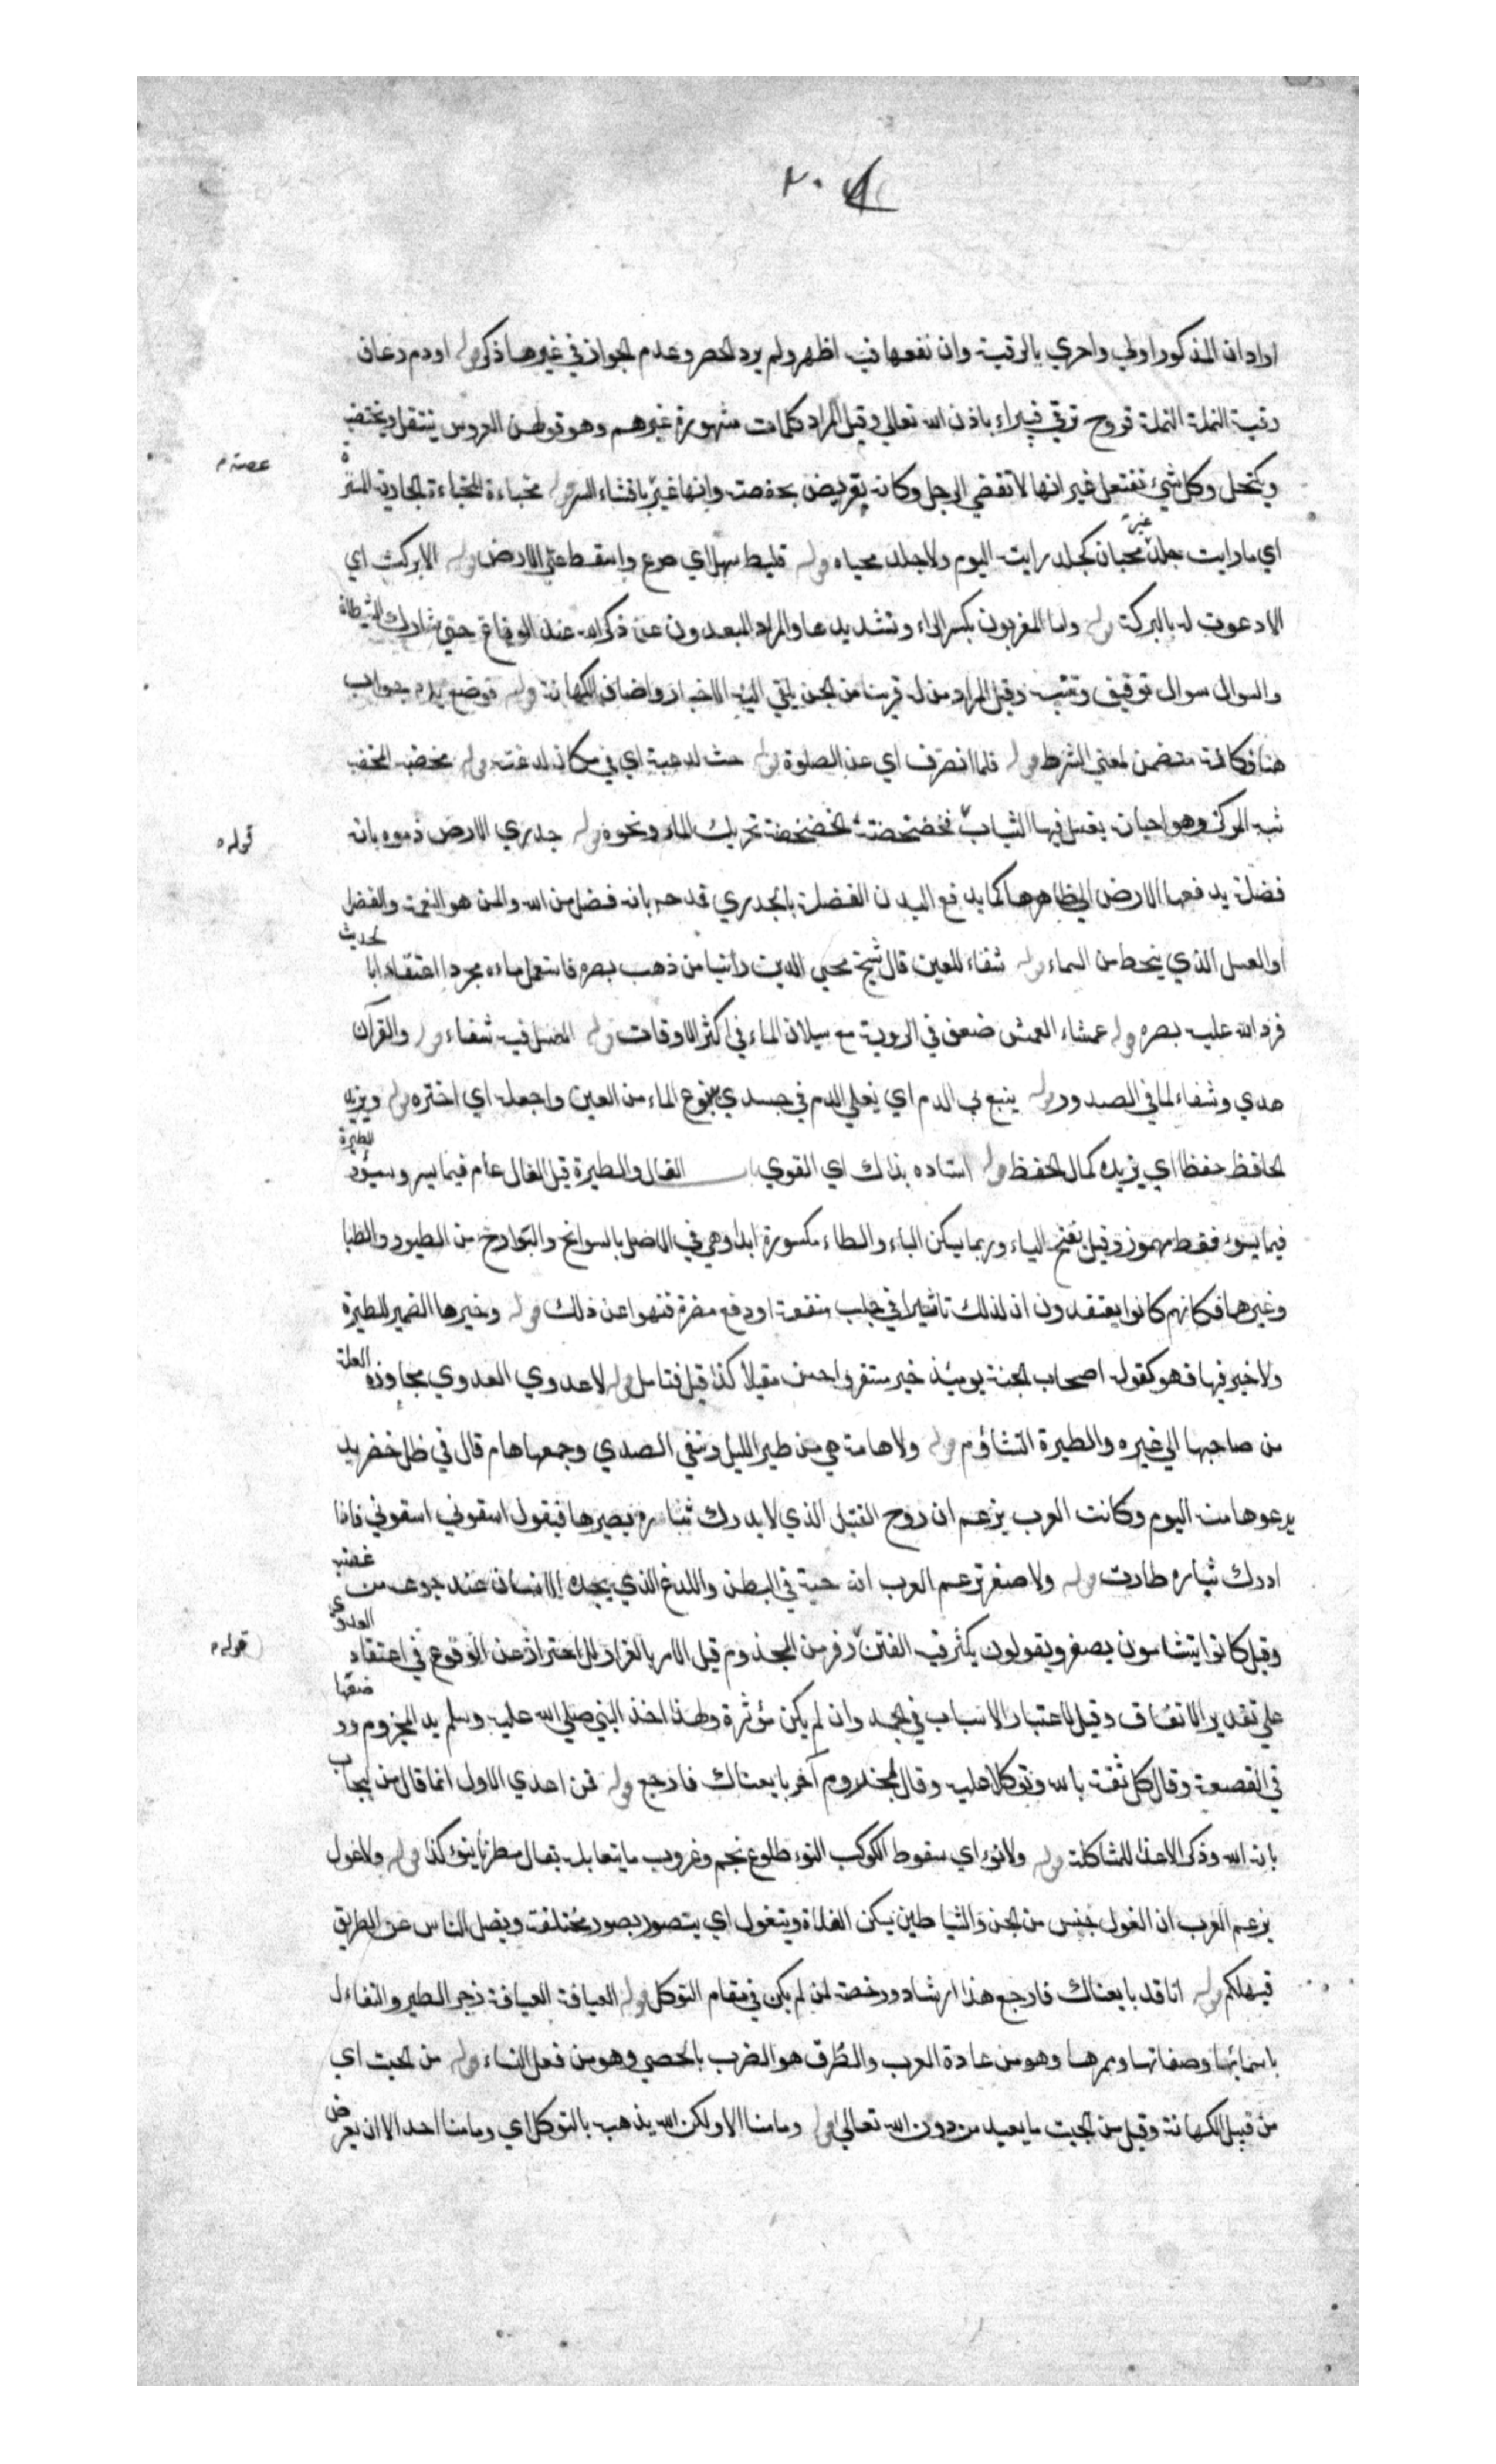 ٢٠
اراد ان المذكور اولي واحري بالرقية وان نفعها فيه اظهر ولم يرد الحصر وعدم الجواز في غيرها ذكر قوله او دم رعاف
رقية النملة النملة قروح ترقي فيبراء باذن الله تعالي وقيل المراد كلمات مشهورة غيرهم وهو قولهن العروس ينتقل ويختضب
ويكتحل وكل شيئ تفتعل غير انها لا تقضي الرجل وكانه تعريض بحفصة وانها غير بافشاء السر قوله مخباءة المخباءة الجارية الستر
اي ما رايت جلد غير محبان كجلد رايت اليوم ولا جلد محياه قوله فليط سهل اي صرع واسقط علي الارض قوله الا بركت اي
الا دعوت له بالبركة قوله واما المغربون بكسر الراء وتشديدها والمراد المبعدون عن ذكر الله عند الوقاع حتي شارك الشيطان
والسوال سوال توقيف وتنبيه وقيل المراد من له قرينا من الجن يلقي اليه الاخبار واضاف الكهانة قوله فوضع يده جواب
هنا فكانه متضمن لمعني الشرط قوله فلما انصرف اي عن الصلوة قوله حيث لدغته اي في مكان لدغته قوله مخضبه المخضب
شبه المركن وهو اجانه يغسل فيها الثياب فخضخضته الخضخضة تحريك الماء ونحوه قوله جدري الارض ذموه بانه
فضلة يدفعها الارض الي ظاهرها كما يدفع البدن الفضلة بالجدري قدحه بانه فضل من الله والمن هو النعمة والفضل
او العسل الذي ينحط من السماء قوله شفاء للعين قال شيخ محيي الدين راتنيا من ذهب بصره فاستعمل ماءه مجردا اعتقادا بالحديث
فرد الله عليه بصره قوله عمشاء العمش ضعف في الروية مع سيلان الماء في اكثر الاوقات قوله العسل فيه شفاء قوله والقرآن
هدي وشفاء لما في الصدور قوله ينبع بي الدم اي يغلي الدم في جسدي ينبوع الماء من العين واجعله اي اختره قوله ويزيد
الحافظ حفظا اي يزيده كمال الحفظ قوله استاده بذاك اي القوي باب الفال والطيرة قيل الفال عام فيما يسر ويسوء والطيرة
فيما يسوء فقط مهموز وقيل بفتح الياء وربما يسكن الياء والطاء مكسورة ابدا وهي في الاصل بالسوانح والبوارح من الطيور والظبا
وغيرها فكانهم كانوا يعتقدون ان لذلك تاثيرا في جلب منفعة او دفع مضرة فنهوا عن ذلك قوله وخيرها الضمير للطيرة
ولا خير فيها فهو كقوله اصحاب الجنة يومئذ خير مستقرا واحسن مقيلا كذا قيل فتامل قوله لا عدوي العدوي مجاوزة العلة
من صاحبها الي غيره والطيرة التشاؤم قوله ولا هامة هي من طير الليل وتنفي الصدي وجمعها هام قال في ظل خضر يد
يدعوها من اليوم وكانت العرب يزعم ان روح القتيل الذي لا يدرك ثاره يصيرها فيقول اسقوني اسقوني فاذا
ادرك ثاره طارت قوله ولا صفر تزعم العرب انه حية في البطن واللدغ الذي يجده الانسان عند جوعه من غضبه
وقيل كانوا يتشامون بصفر ويقولون يكثر فيه الفتن وفر من المجذوم قيل الامر بالفرار للاحتراز عن الوقوع في اعتقاد العدوي
علي تقدير الاتفاق وقيل لاعتبار الاسباب في الجملة وان لم يكن مؤثرة ولهذا اخذ النبي صلي الله عليه وسلم يد المجزوم ووضعها
في القصعة وقال كل ثقة بالله وتوكلا عليه وقال لمجذوم آخر بايعناك فارجع قوله فمن اعدي الاول انما قال من ليجاب
بانه الله وذكر الاعداء للمشاكلة قوله ولا نوء اي سقوط الكوكب النوء طلوع نجم وغروب ما يتقابله يقال مطرنا بنوء كذا قوله ولا غول
يزعم العرب ان الغول جنس من الجن والشياطين يسكن الفلاة ويتغول اي يتصور بصور مختلفة ويضل الناس عن الطريق
فيهلكهم قوله انا قد بايعناك فارجع هذا ارشاد ورخصة لمن لم يكن في مقام التوكل قوله العيافة العيافة زجر الطير والتفاءل
باسمائها وصفاتها وممرها وهو من عادة العرب والطرق هو الضرب بالحصي وهو من فعل النساء قوله من الجبت اي
من قبيل الكهانة وقيل من الجبت ما يعبد من دون الله تعالي قوله وما منا الا ولكن الله يذهبه بالتوكل اي وما منا احد الا ان يعرض
قوله
قوله